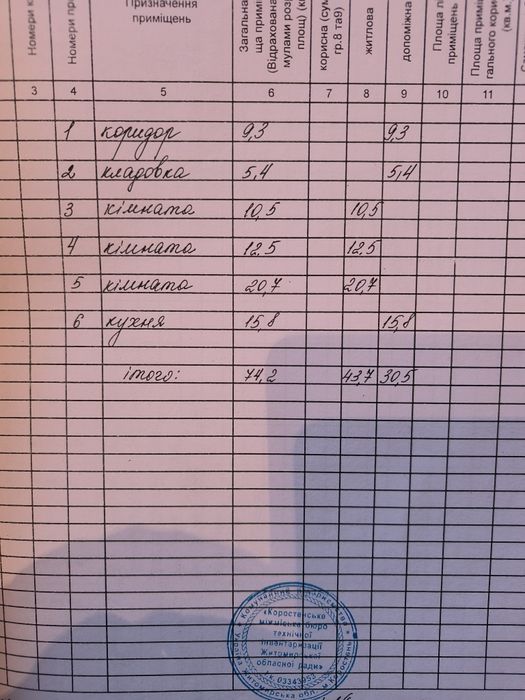 Номери к
Номери пр
Призначення
приміщень
Загальна
ща примі
(Відрахована
мулами роз
площі) (к
корисна (сум
гр.8 та9)
житлова
допоміжна
Площа л
приміщень
Площа приміщ
гального кори
(кв.м.
3 4 5 6 7 8 9 10 11
1 коридор 9,3 9,3
2 кладовка 5,4 5,4
3 кімната 10,5 10,5
4 кімната 12.5 12.5
5 кімната 20,7 20,7
6 кухня 15,8 15,8
ітого: 74,2 43,7 30,5
Комунальне підприємство
«Коростенське
міжміське бюро
технічної
інвентаризації
Житомирської
обласної ради»
к. 03343953
Україна Житомирська обл. м Коростень